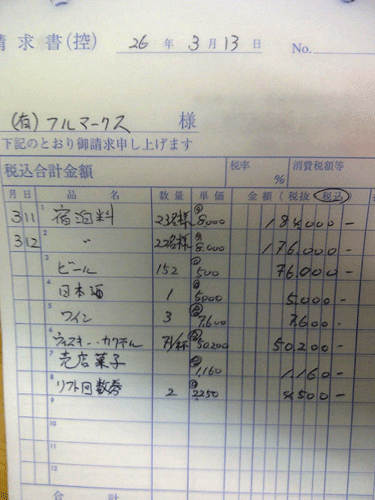 請求書(控) 26年 3月 13日 No.
(有)フルマークス 様
下記のとおり御請求申し上げます
税込合計金額 税率 % 消費税額等
月 日 品 名 数量 単価 金額(税抜・税込)
3 11 1 宿泊料 23名様 @8,000 184,000-
3 12 2 〃 22名様 @8,000 176,000-
3 ビール 152 @500 76,000-
4 日本酒 1 @5,000 5,000-
5 ワイン 3 7,600 7,600.
6 ウィスキー・カクテル 71杯 50,200 50,200-
7 売店菓子 1,160 1,160-
8 リフト回数券 2 @2250 4500-
9
10
11
12
合 計